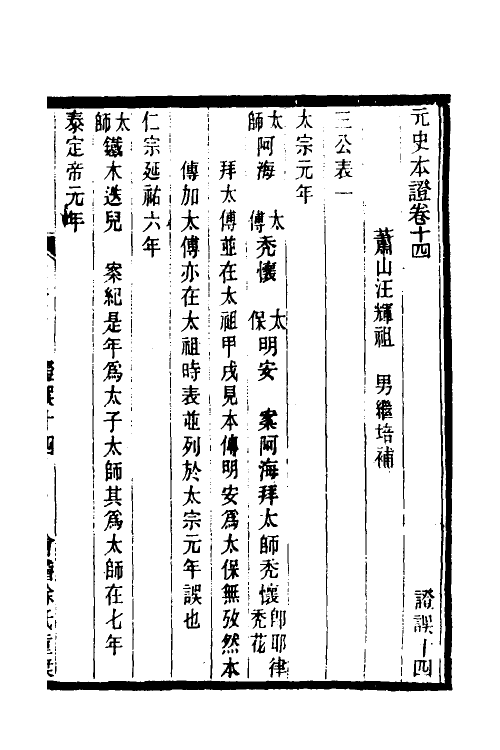 元史本證卷十四
證誤十四
蕭山汪輝祖 男繼培補
三公表一
太宗元年
太師阿海 太傅禿懷 太保明安 案阿海拜太師禿懷卽耶律禿花
拜太傅並在太祖甲戌見本傳明安爲太保無攷然本
傳加太傅亦在太祖時表並列於太宗元年誤也
仁宗延祐六年
太師鐵木迭兒 案紀是年爲太子太師其爲太師在七年
泰定帝元年
證誤十四
會稽徐氏重